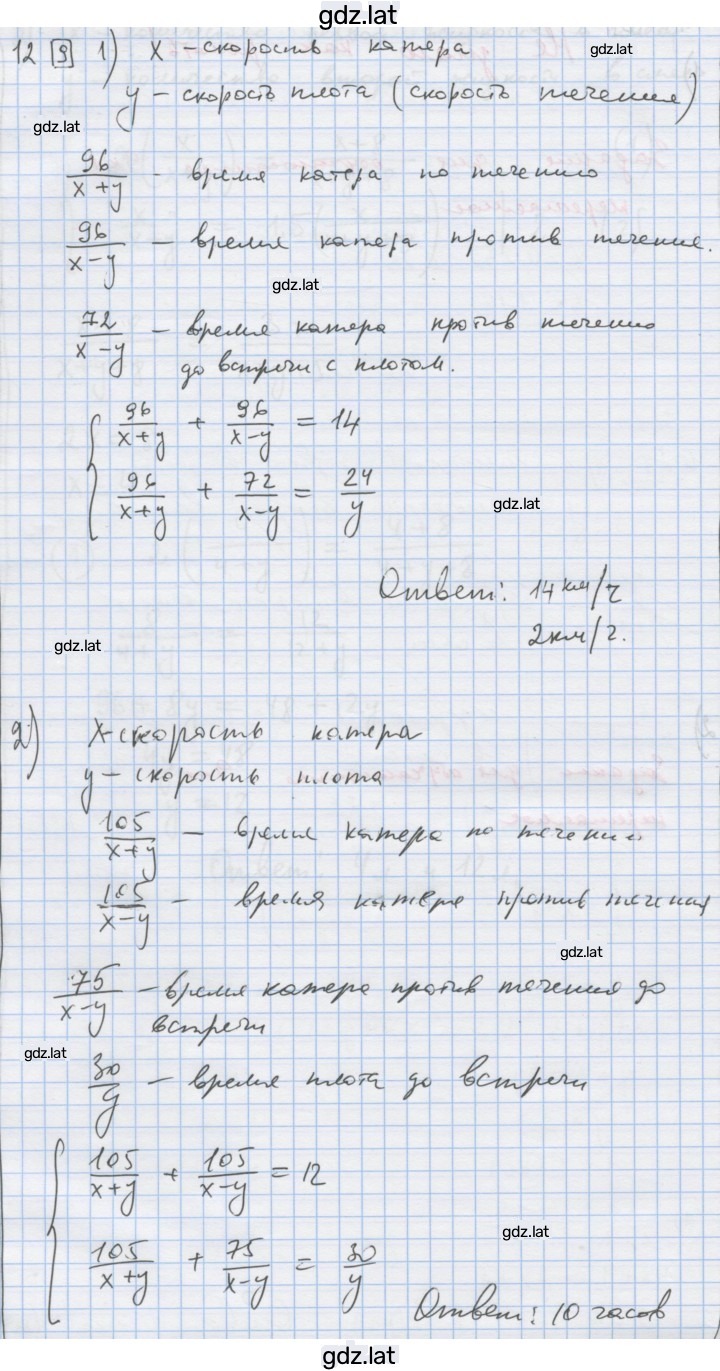 gdz.lat
12 9 1) x - скорость катера
gdz.lat
y - скорость плота (скорость течения)
gdz.lat
96/(x+y) - время катера по течению
96/(x-y) - время катера против течение.
gdz.lat
72/(x-y) - время катера против течению
до встречи с плотом.
{ 96/(x+y) + 96/(x-y) = 14
96/(x+y) + 72/(x-y) = 24/y
gdz.lat
Ответ: 14 км/ч
2 км/ч.
gdz.lat
2) x - скорость катера
y - скорость плота
105/(x+y) - время катера по течению
105/(x-y) - время катере против течения
gdz.lat
75/(x-y) - время катера против течения до
встречи
gdz.lat
30/y - время плота до встречи
{ 105/(x+y) + 105/(x-y) = 12
gdz.lat
105/(x+y) + 75/(x-y) = 30/y
Ответ: 10 часов
gdz.lat